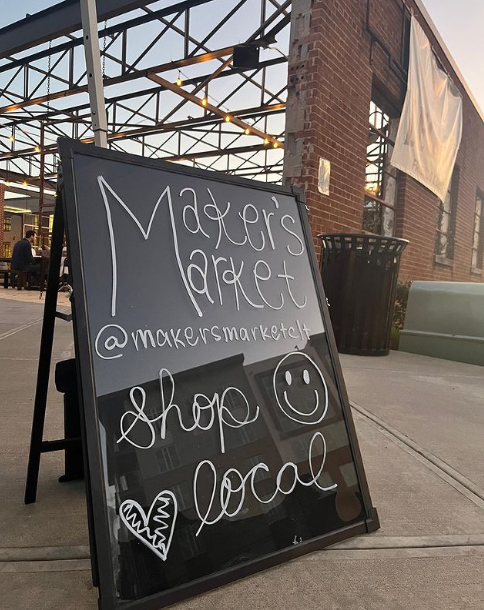 Maker's
Market
@makersmarketclt
Shop
local